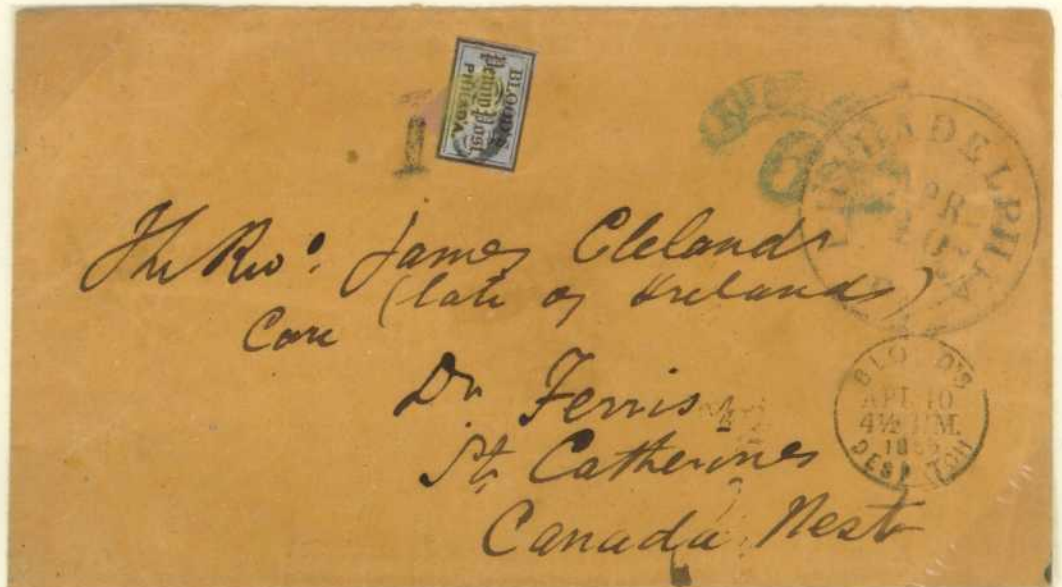 BLOOD'S
Penny Post
PHILAD'A.
1
6
PHILADELPHIA
APR
10
The Revd. James Cleland
(late of Ireland)
Care
Dr Ferris
St. Catherines
Canada West
BLOOD'S
APL 10
4½ P.M.
DESPATCH